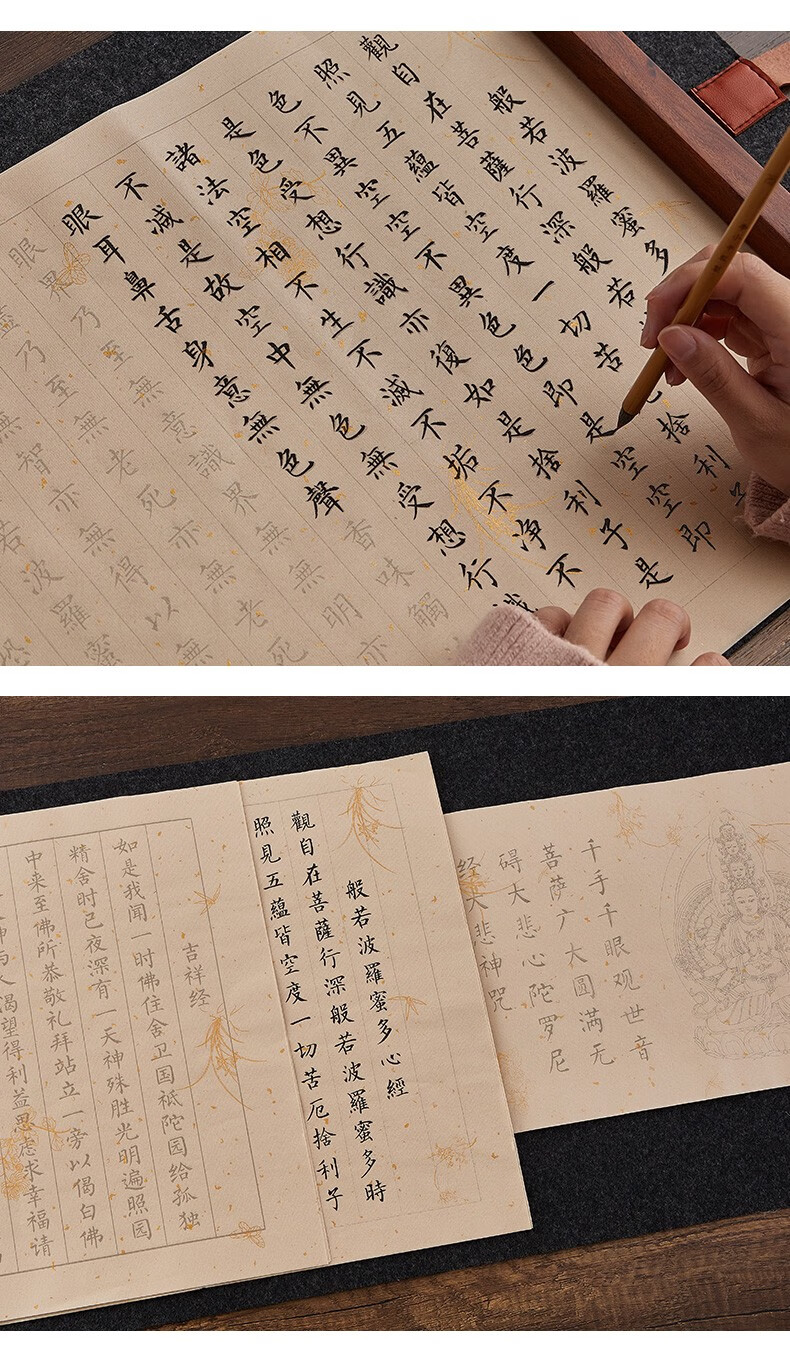 般若波羅蜜多
觀自在菩薩行深般若
照見五蘊皆空度一切苦捨利子
色不異空空不異色色即是空空即
是色受想行識亦復如是捨利子是
諸法空相不生不滅不垢不淨不
不減是故空中無色無受想行
眼耳鼻舌身意無色聲香味觸
眼界乃至無意識界無無明亦
乃至無老死亦無老死
智亦無得以無
若波羅蜜
恐
千手千眼观世音
菩萨广大圆满无
碍大悲心陀罗尼
经大悲神咒
般若波羅蜜多心經
觀自在菩薩行深般若波羅蜜多時
照見五蘊皆空度一切苦厄捨利子
吉祥经
如是我闻一时佛住舍卫国祇陀园给孤独
精舍时已夜深有一天神殊胜光明遍照园
中来至佛所恭敬礼拜站立一旁以偈白佛
人渴望得利益思虑求幸福请